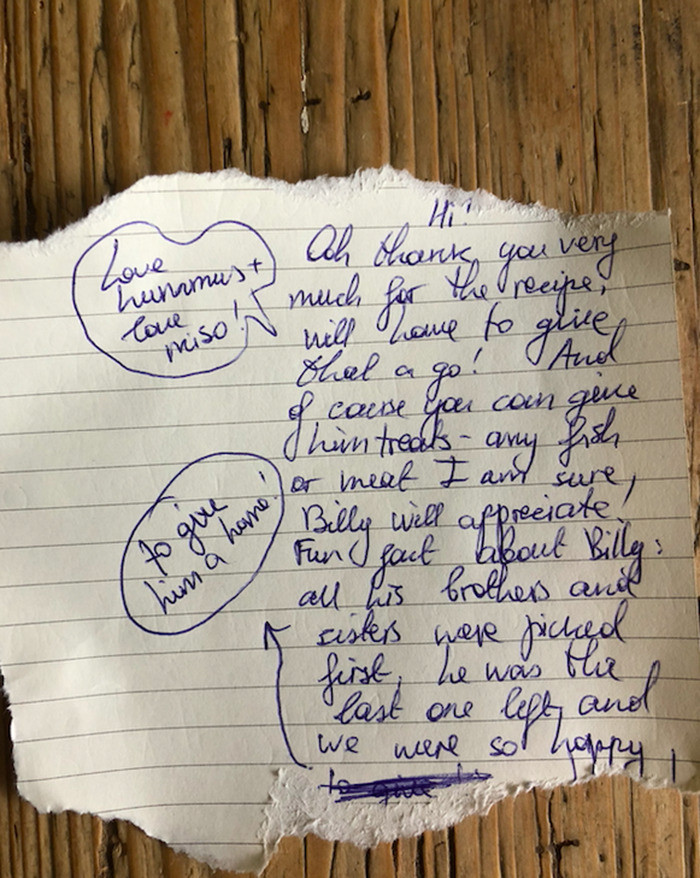 Hi!
Ooh thank you very
much for the recipe,
will have to give
that a go! And
of course you can give
him treats - any fish
or meat I am sure,
Billy will appreciate!
Fun fact about Billy:
all his brothers and
sisters were picked
first, he was the
last one left, and
we were so happy
to give
to give
him a home!
Love
hummus +
love
miso!